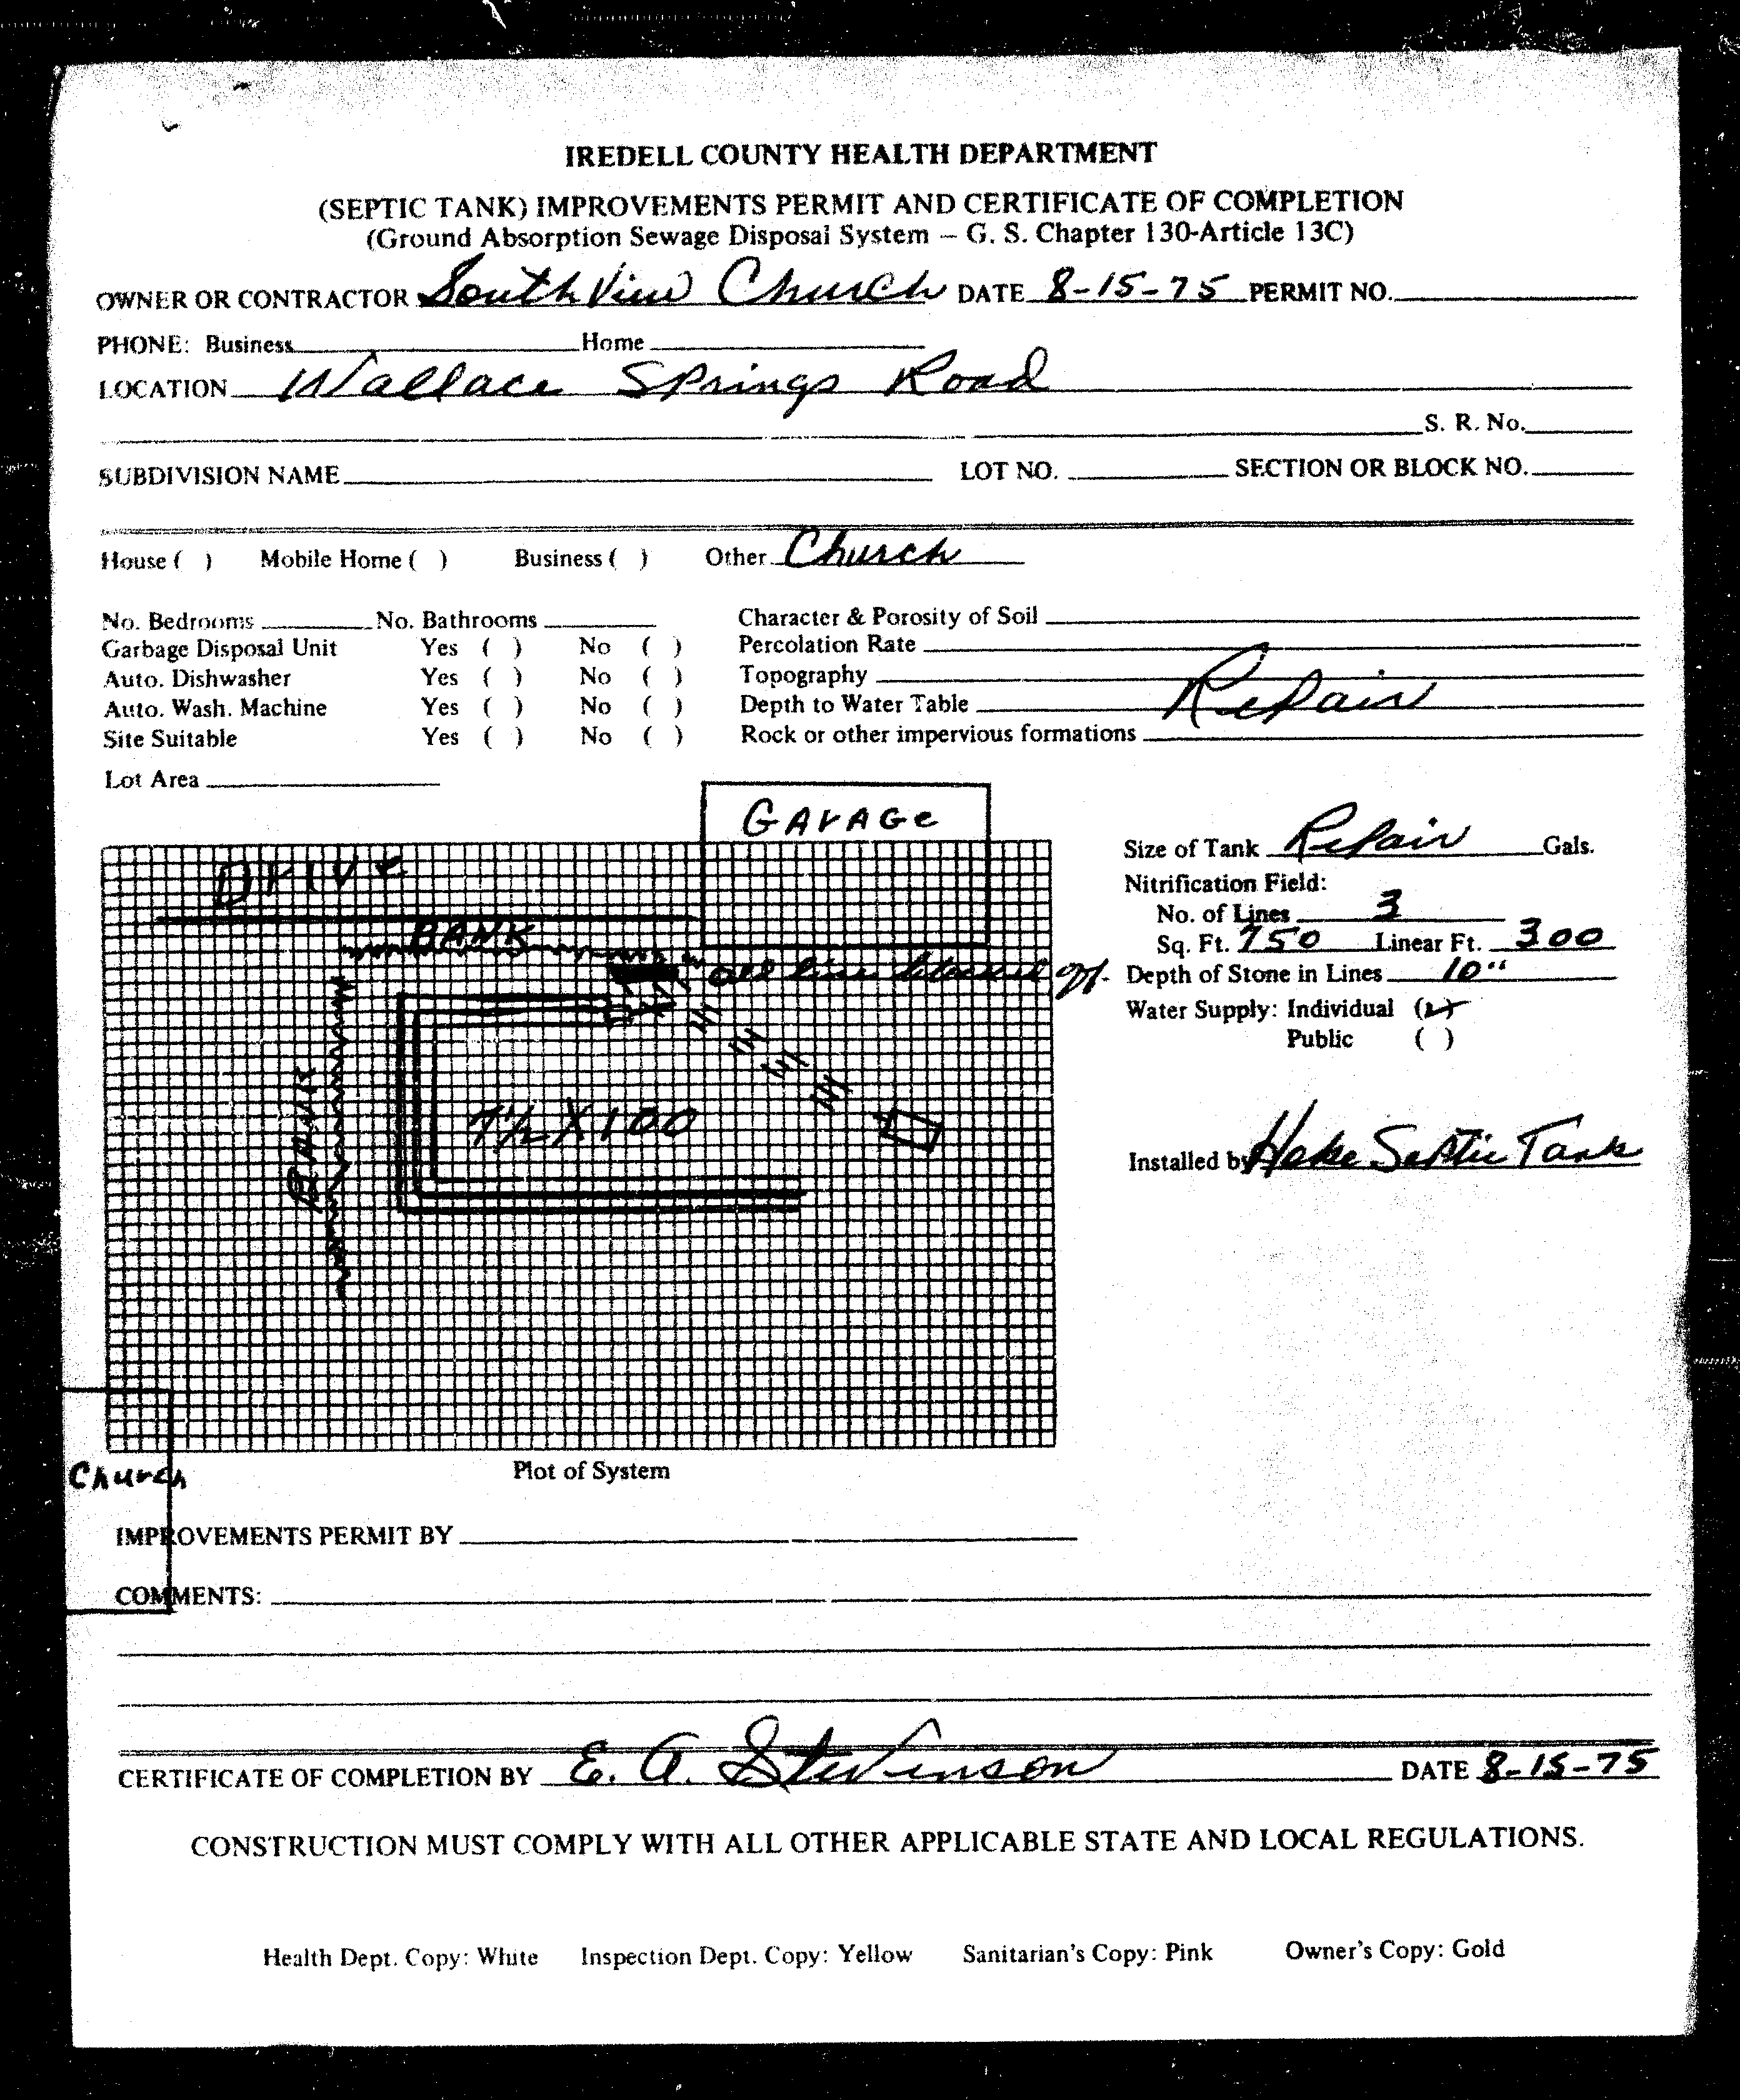 IREDELL COUNTY HEALTH DEPARTMENT
(SEPTIC TANK) IMPROVEMENTS PERMIT AND CERTIFICATE OF COMPLETION
(Ground Absorption Sewage Disposal System — G. S. Chapter 130-Article 13C)
OWNER OR CONTRACTOR South View Church DATE 8-15-75 PERMIT NO.
PHONE: Business Home
LOCATION Wallace Springs Road
S. R. No.
SUBDIVISION NAME LOT NO. SECTION OR BLOCK NO.
House ( ) Mobile Home ( ) Business ( ) Other Church
No. Bedrooms No. Bathrooms Character & Porosity of Soil
Garbage Disposal Unit Yes ( ) No ( ) Percolation Rate
Auto. Dishwasher Yes ( ) No ( ) Topography
Auto. Wash. Machine Yes ( ) No ( ) Depth to Water Table Repair
Site Suitable Yes ( ) No ( ) Rock or other impervious formations
Lot Area
GArAGe
Size of Tank Repair Gals.
Drive
Nitrification Field:
No. of Lines 3
BANK
Sq. Ft. 750 Linear Ft. 300
old line off.
Depth of Stone in Lines 10"
Water Supply: Individual (✓)
Public ( )
BANK
7½ X 100
Installed by Septic Tank
Church
Plot of System
IMPROVEMENTS PERMIT BY
COMMENTS:
CERTIFICATE OF COMPLETION BY E. A. Stevenson DATE 8-15-75
CONSTRUCTION MUST COMPLY WITH ALL OTHER APPLICABLE STATE AND LOCAL REGULATIONS.
Health Dept. Copy: White Inspection Dept. Copy: Yellow Sanitarian's Copy: Pink Owner's Copy: Gold